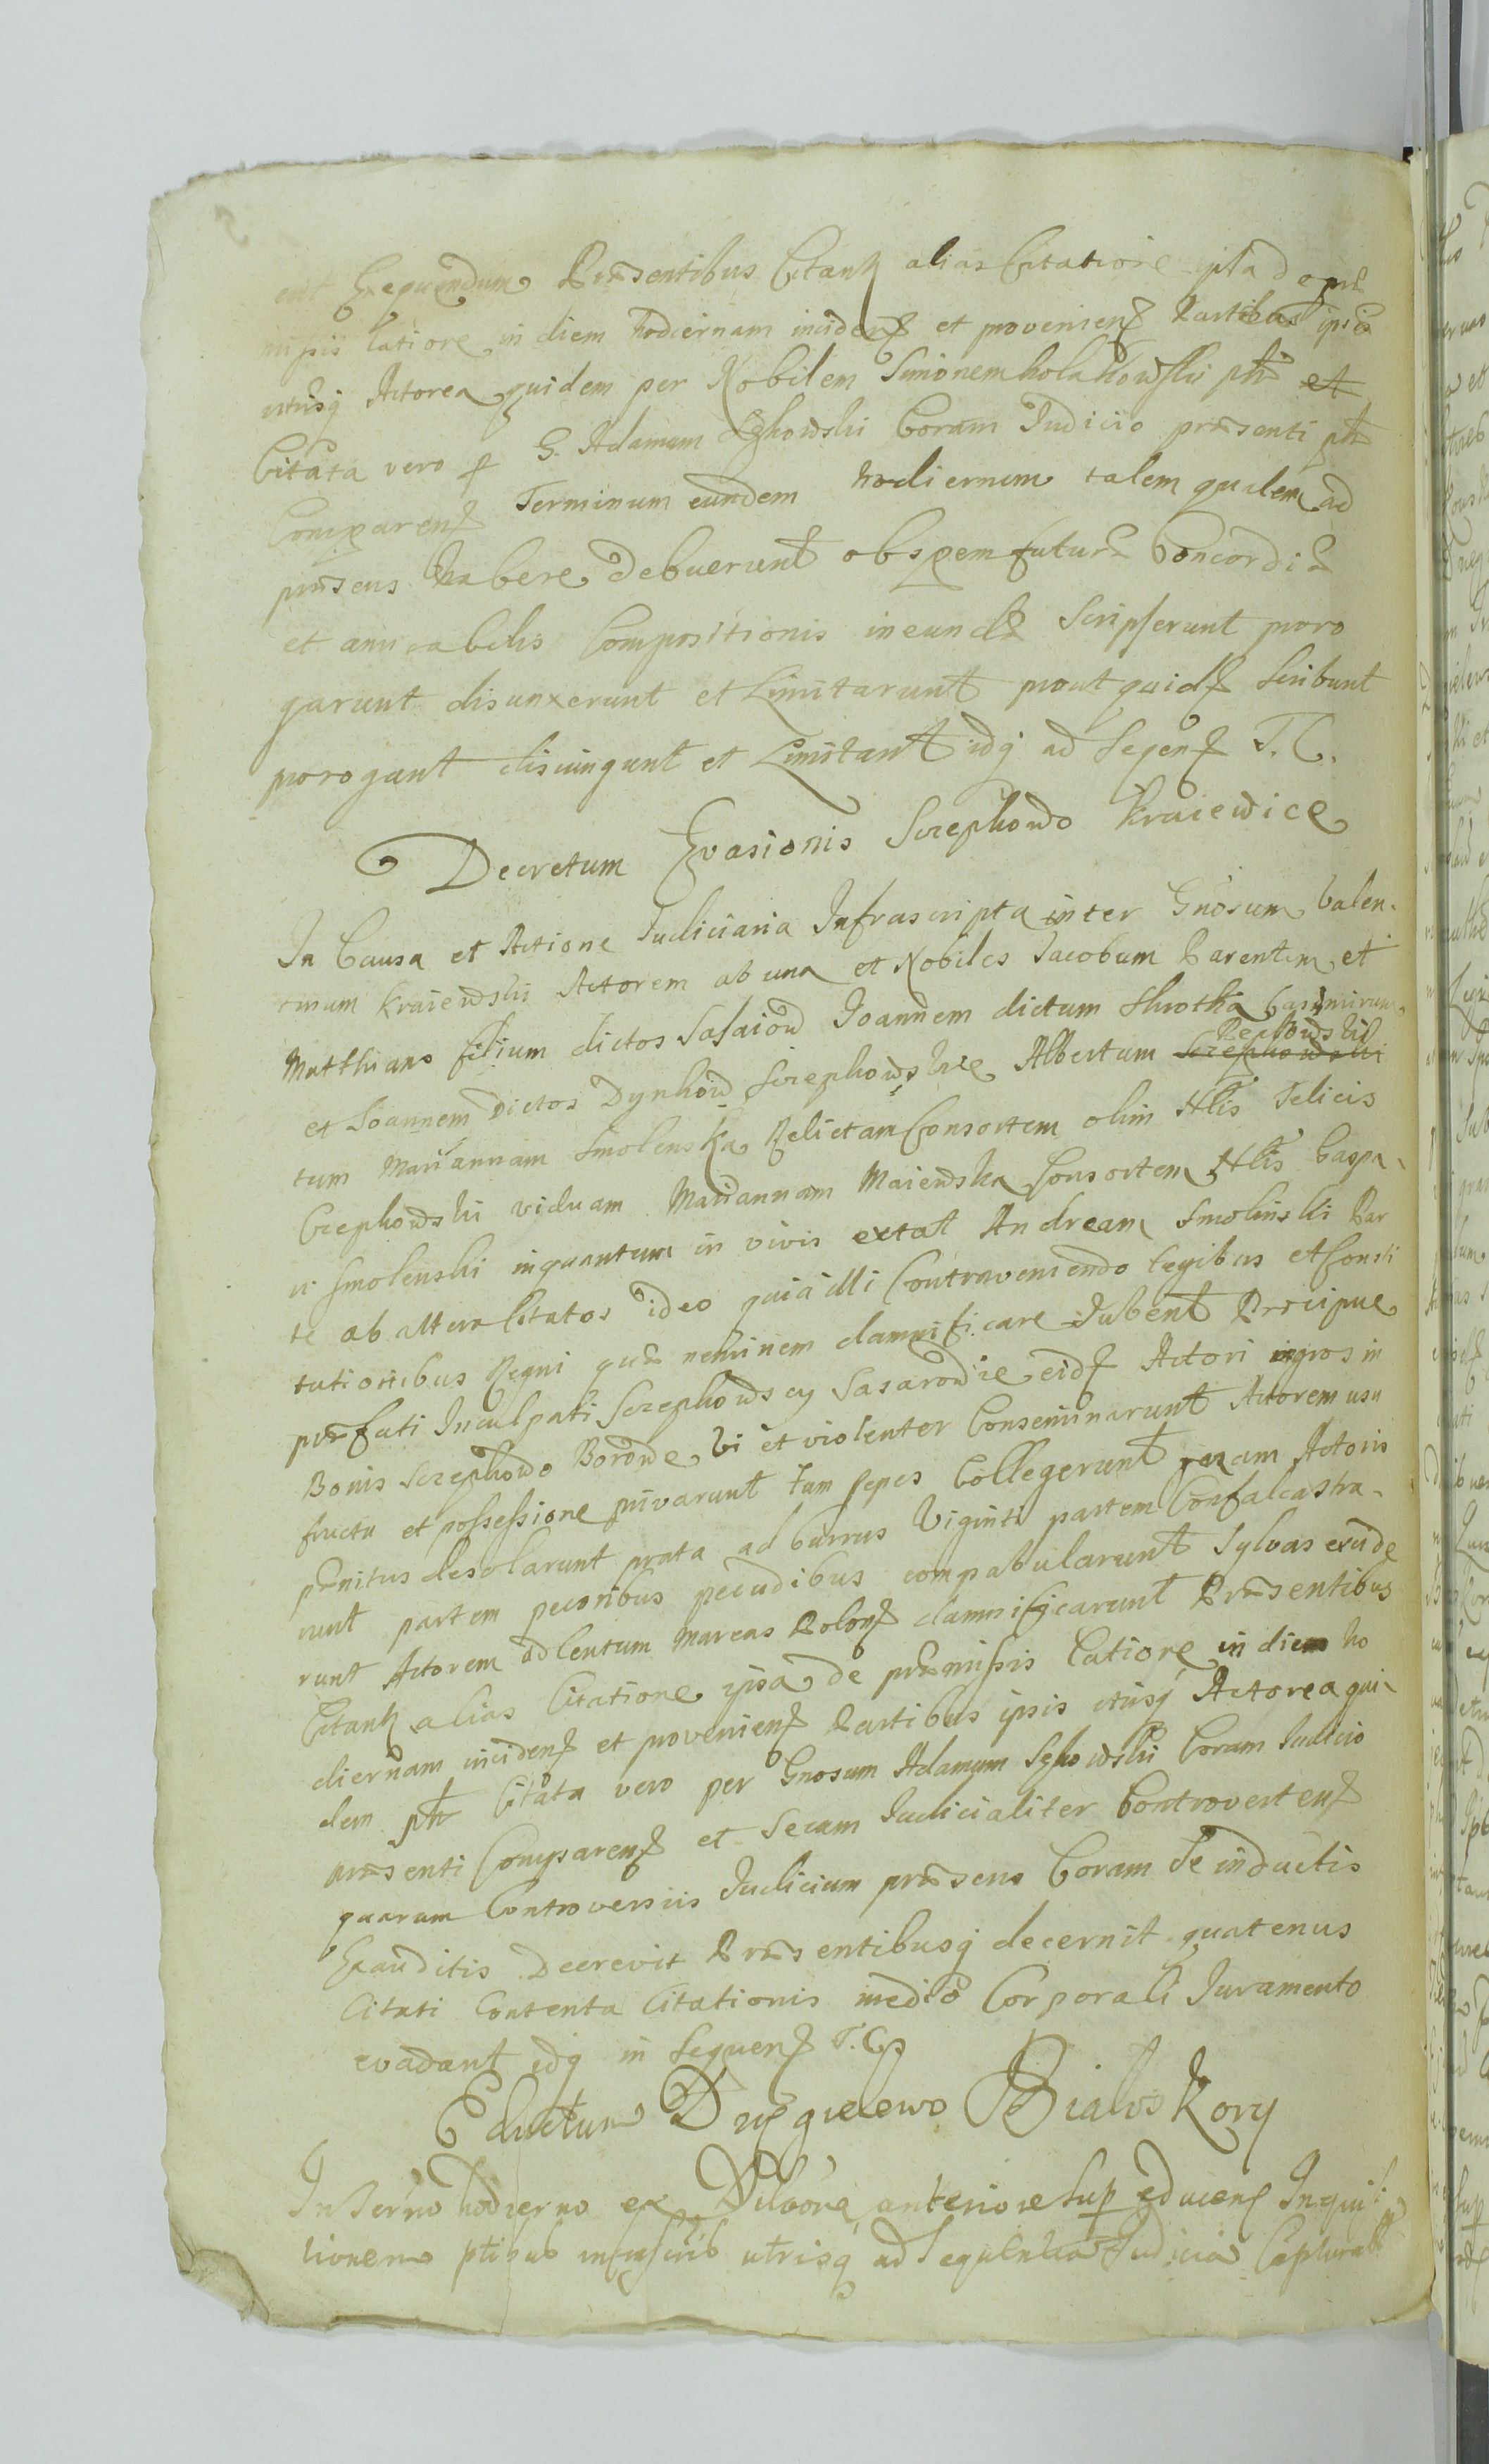 ent Exequendum Præsentibus Citanē alias Citatione ipsa de præ
mißis latiore in diem hodiernam incidenē et provenienē Partibus ipsis
utrisq Actorea quidem per Nobilem Simonem kolakowski ptr et
Citata vero p G. Adamum Coram Iudicio præsenti ptr
Comparenē Terminum eundem hodiernum talem qualem ad
præsens habere debuerunt ob spem futuræ Concordiæ
et amicabilis Compositionis ineundæ Scripserunt poro
garunt disiunxerunt et Limitarunt prout quidē Scribunt
porogant disiungunt et Limitant idq ad Seqenē T. C.
Decretum Evasionis Szczepkowo Kraiewice
In Causa et Actione Iudiciaria Infrascripta inter Gnosum Valen-
tinum Kraiewski Actorem ab una et Nobiles Iacobum Parentem et
Matthiam filium dictos Sasaiow Ioannem dictum Skrotka Casimirum
et Ioannem dictos Dynkow Szczepkowskie Albertum Szczepkowski
tum Mariannam Smolenska Relictam Consortem olim Nlis Felicis
Czepkowski viduam Mariannam Maiewska Consortem Nlis Caspa-
ri Smolenski inquantum in vivis extat Andream Smolinski Par
te ab altera Citatos ideo quia illi Contraveniendo legibus et Consti
tutionibus Regni quæ neminem damnificare Iubent Præcipue
præfati Inculpati Szczepkowscy Sasarowie eidē Actori agros in
Bonis Szczepkowo Borowe Vi et violenter Conseminarunt Actorem usu
fructu et possessione privarunt Tum sepes Collegerunt rezam Actoris
penitus desolarunt prata ad currus Viginti partem Confalcastra-
runt partem pecoribus pecudibus compabularunt Sylvas excide
runt Actorem ad Centum Marcas Polonē damnificarunt Præsentibus
Citanē alias Citatione ipsa de præmißis latiore in diem ho
diernam incidenē et provenienē Partibus ipsis utrisq Actorea qui-
dem ptr Citata vero per Gnosum Adamum Coram Iudicio
præsenti Comparenē et Secum Iudicialiter Controvertenē
quarum Controversiis Iudicium præsens Coram Se inductis
Exauditis Decrevit Præsentibusq decernit quatenus
Citati Contenta Citationis medio Corporali Iuramento
evadant idq in Sequenē T. C.
Eductum Drągielewo Białoskory
In Termo hodierno ex anteriore Sup educenē Inquisi
tionem ptibus infrascrib utrisq ad Sequentia Iudicia Capturalia